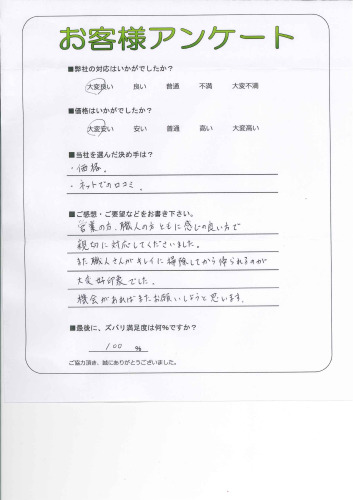 お客様アンケート
■弊社の対応はいかがでしたか?
大変良い 良い 普通 不満 大変不満
■価格はいかがでしたか?
大変安い 安い 普通 高い 大変高い
■当社を選んだ決め手は?
・価格。
・ネットでの口コミ。
■ご感想・ご要望などをお書き下さい。
営業の方、職人の方ともに感じの良い方で
親切に対応してくださいました。
また職人さんがキレイに掃除してから帰られるのが
大変好印象でした。
機会があればまたお願いしようと思います。
■最後に、ズバリ満足度は何%ですか?
100 %
ご協力頂き、誠にありがとうございました。